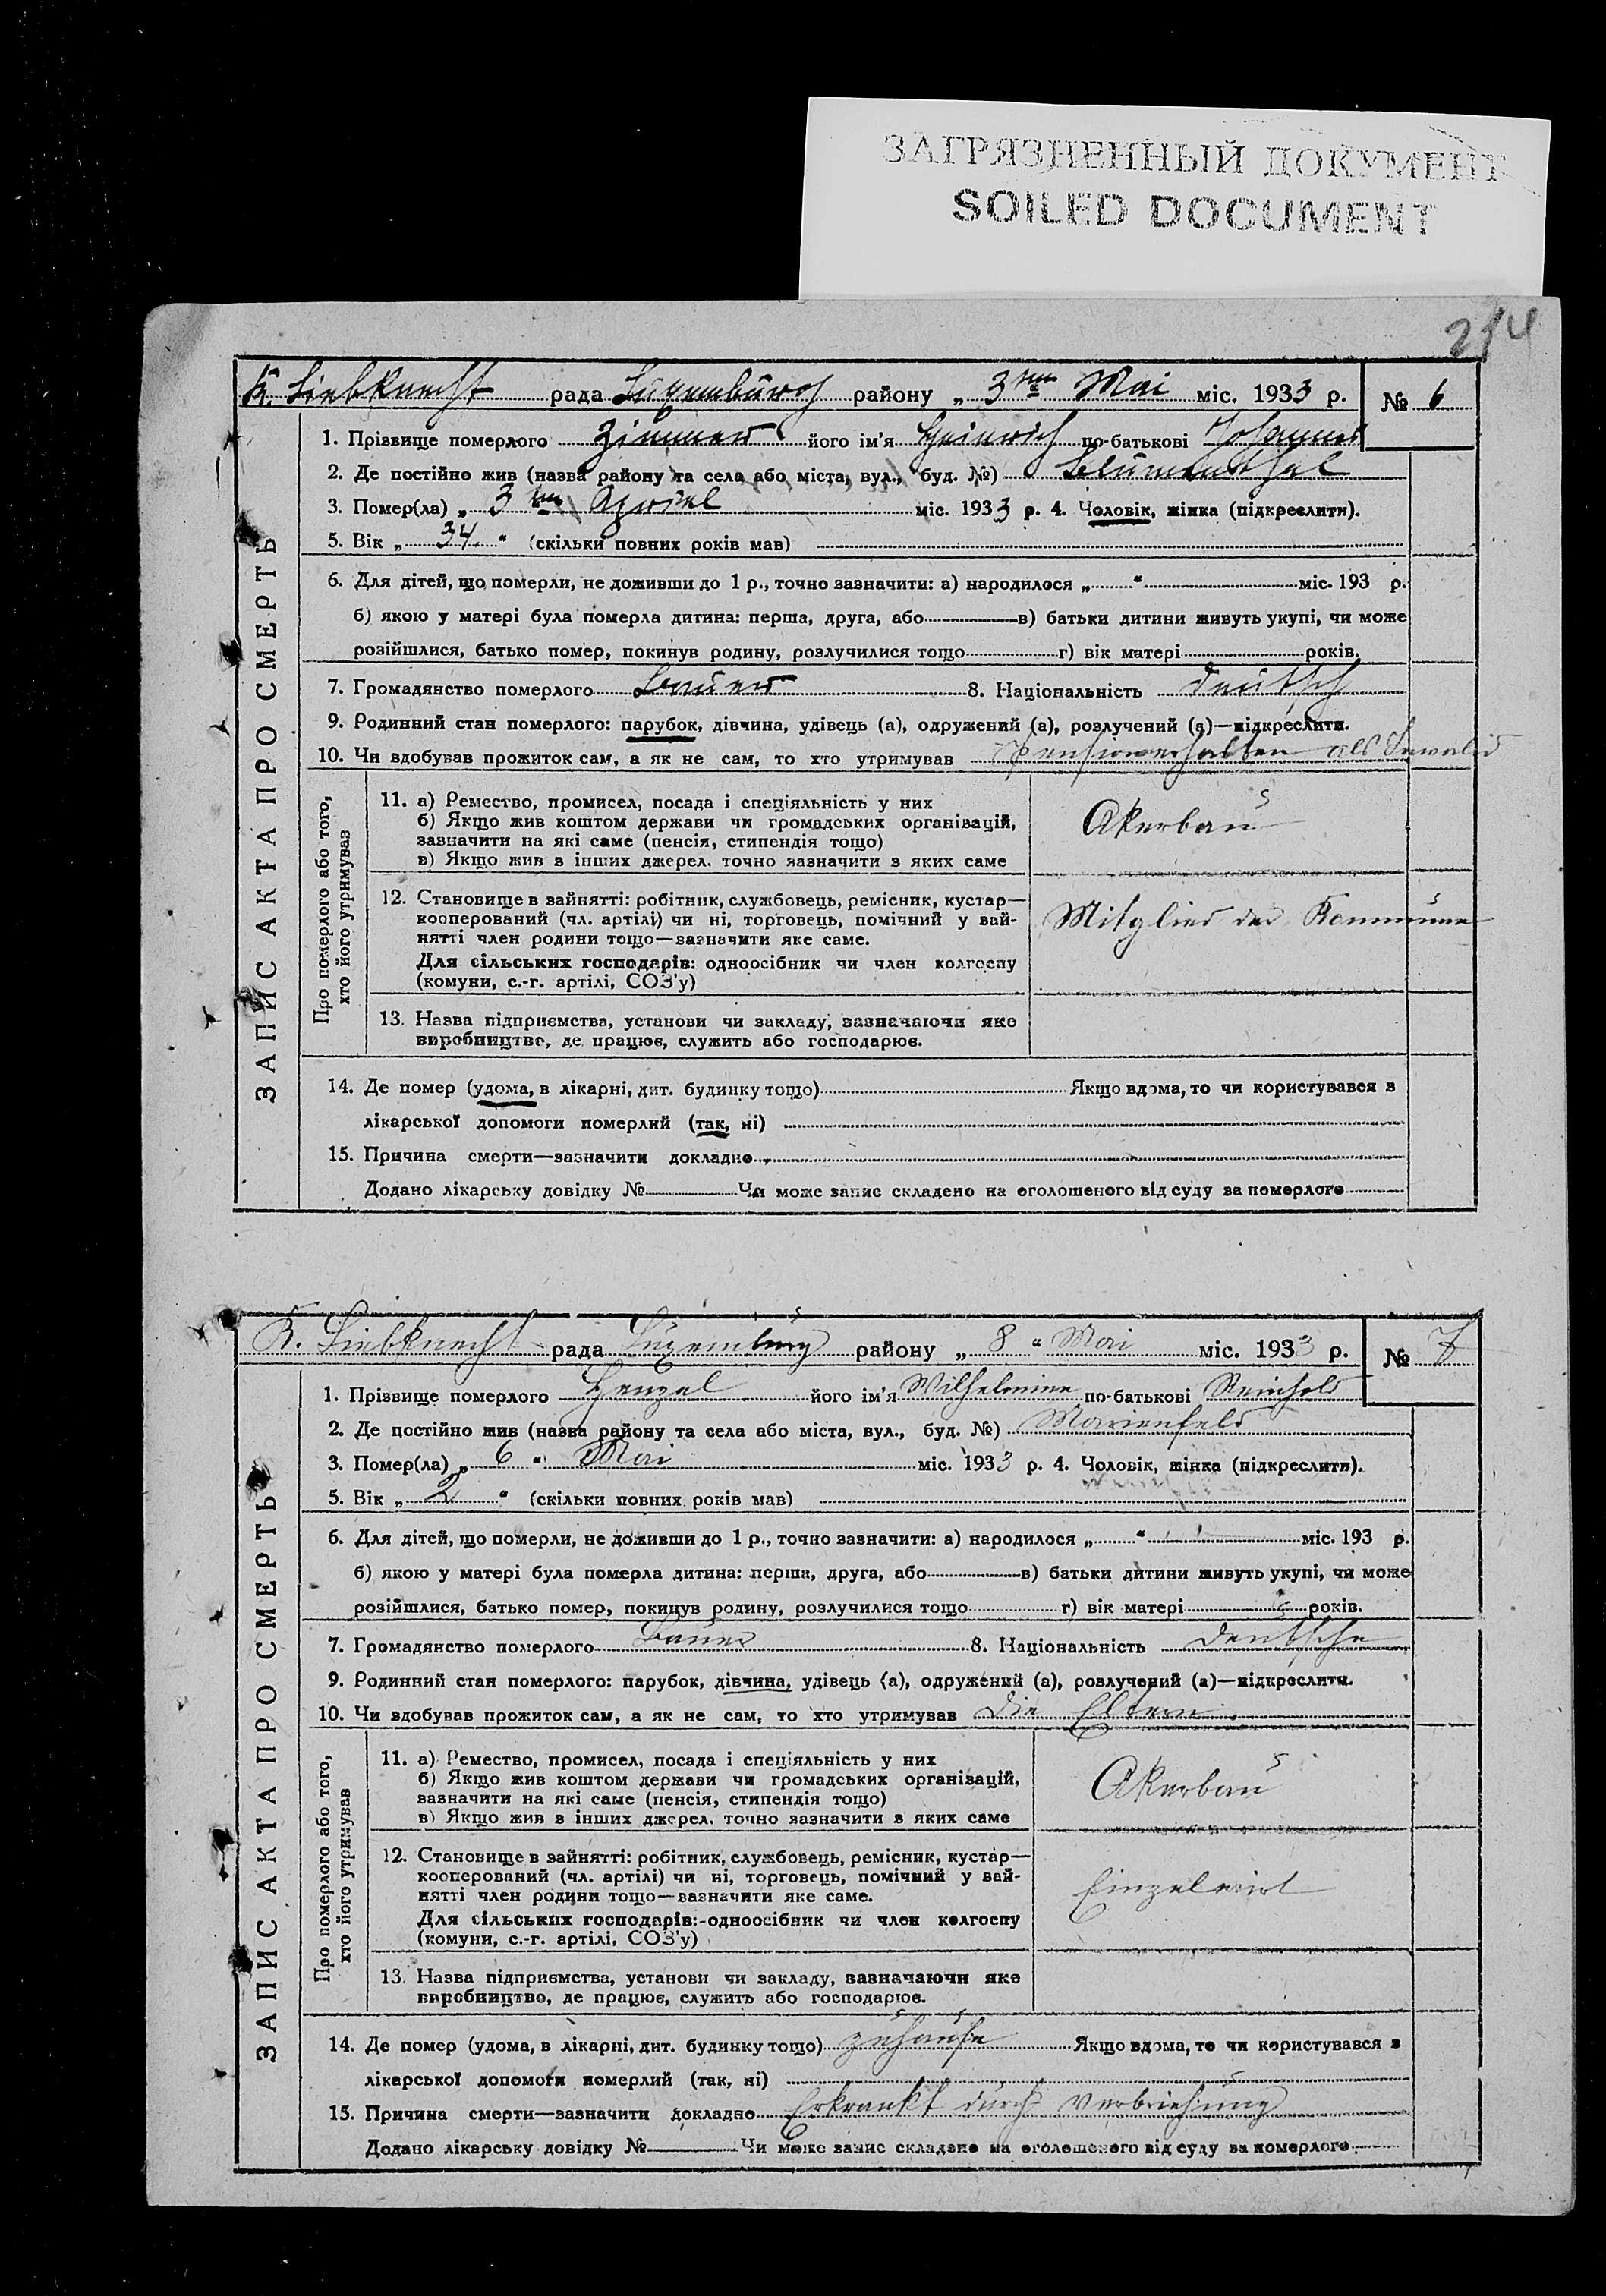 ЗАГРЯЗНЕННЫЙ ДОКУМЕНТ
SOILED DOCUMENT
214
K. Liebknecht рада Luxemburg району „ 3ten Mai міс. 1933 р. № 6
ЗАПИС АКТА ПРО СМЕРТЬ
1. Прізвище померлого Zimmer його ім'я Heinrich по-батькові Johannes
2. Де постійно жив (назва району та села або міста, вул., буд. №) Blumenthal
3. Помер(ла) „ 3ten April міс. 1933 р. 4. Чоловік, жінка (підкреслити).
5. Вік „ 34 “ (скільки повних років мав)
6. Для дітей, що померли, не доживши до 1 р., точно зазначити: а) народилося „ “ міс. 193 р.
б) якою у матері була померла дитина: перша, друга, або в) батьки дитини живуть укупі, чи може
розійшлися, батько помер, покинув родину, розлучилися тощо г) вік матері років.
7. Громадянство померлого Bauer 8. Національність deutsch
9. Родинний стан померлого: парубок, дівчина, удівець (а), одружений (а), розлучений (а)—підкреслити.
10. Чи здобував прожиток сам, а як не сам, то хто утримував Pensionerhalten als Invalid
Про померлого або того,
хто його утримував
11. а) Ремество, промисел, посада і спеціяльність у них
б) Якщо жив коштом держави чи громадських організацій,
зазначити на які саме (пенсія, стипендія тощо)
в) Якщо жив з інших джерел. точно зазначити з яких саме
Akerbau
12. Становище в зайнятті: робітник, службовець, ремісник, кустар—
кооперований (чл. артілі) чи ні, торговець, помічний у зай-
нятті член родини тощо—зазначити яке саме.
Для сільських господарів: одноосібник чи член колгоспу
(комуни, с.-г. артілі, СОЗ'у)
Mitglied der Kommune
13. Назва підприємства, установи чи закладу, зазначаючи яке
виробництво, де працює, служить або господарює.
14. Де помер (удома, в лікарні, дит. будинку тощо) Якщо вдома, то чи користувався з
лікарської допомоги померлий (так, ні)
15. Причина смерти—зазначити докладно
Додано лікарську довідку № Чи може запис складено на оголошеного від суду за померлого
K. Liebknecht рада Luxemburg району „ 8 “ Mai міс. 1933 р. № 7
ЗАПИС АКТА ПРО СМЕРТЬ
1. Прізвище померлого Henzel його ім'я Wilhelmine по-батькові Reinhold
2. Де постійно жив (назва району та села або міста, вул., буд. №) Marienfeld
3. Помер(ла) „ 6 “ Mai міс. 1933 р. 4. Чоловік, жінка (підкреслити).
5. Вік „ 2 “ (скільки повних років мав)
6. Для дітей, що померли, не доживши до 1 р., точно зазначити: а) народилося „ “ міс. 193 р.
б) якою у матері була померла дитина: перша, друга, або в) батьки дитини живуть укупі, чи може
розійшлися, батько помер, покинув родину, розлучилися тощо г) вік матері років.
7. Громадянство померлого Bauer 8. Національність deutsche
9. Родинний стан померлого: парубок, дівчина, удівець (а), одружений (а), розлучений (а)—підкреслити.
10. Чи здобував прожиток сам, а як не сам, то хто утримував die Eltern
Про померлого або того,
хто його утримував
11. а) Ремество, промисел, посада і спеціяльність у них
б) Якщо жив коштом держави чи громадських організацій,
зазначити на які саме (пенсія, стипендія тощо)
в) Якщо жив з інших джерел. точно зазначити з яких саме
Akerbau
12. Становище в зайнятті: робітник, службовець, ремісник, кустар—
кооперований (чл. артілі) чи ні, торговець, помічний у зай-
нятті член родини тощо—зазначити яке саме.
Для сільських господарів:-одноосібник чи член колгоспу
(комуни, с.-г. артілі, СОЗ'у)
Einzelwirt
13. Назва підприємства, установи чи закладу, зазначаючи яке
виробництво, де працює, служить або господарює.
14. Де помер (удома, в лікарні, дит. будинку тощо) zuhause Якщо вдома, то чи користувався з
лікарської допомоги померлий (так, ні)
15. Причина смерти—зазначити докладно Erkrankt durch Verbrühung
Додано лікарську довідку № Чи може запис складено на оголошеного від суду за померлого